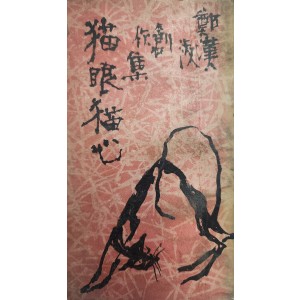 鄭
創作集
猫眼猫心